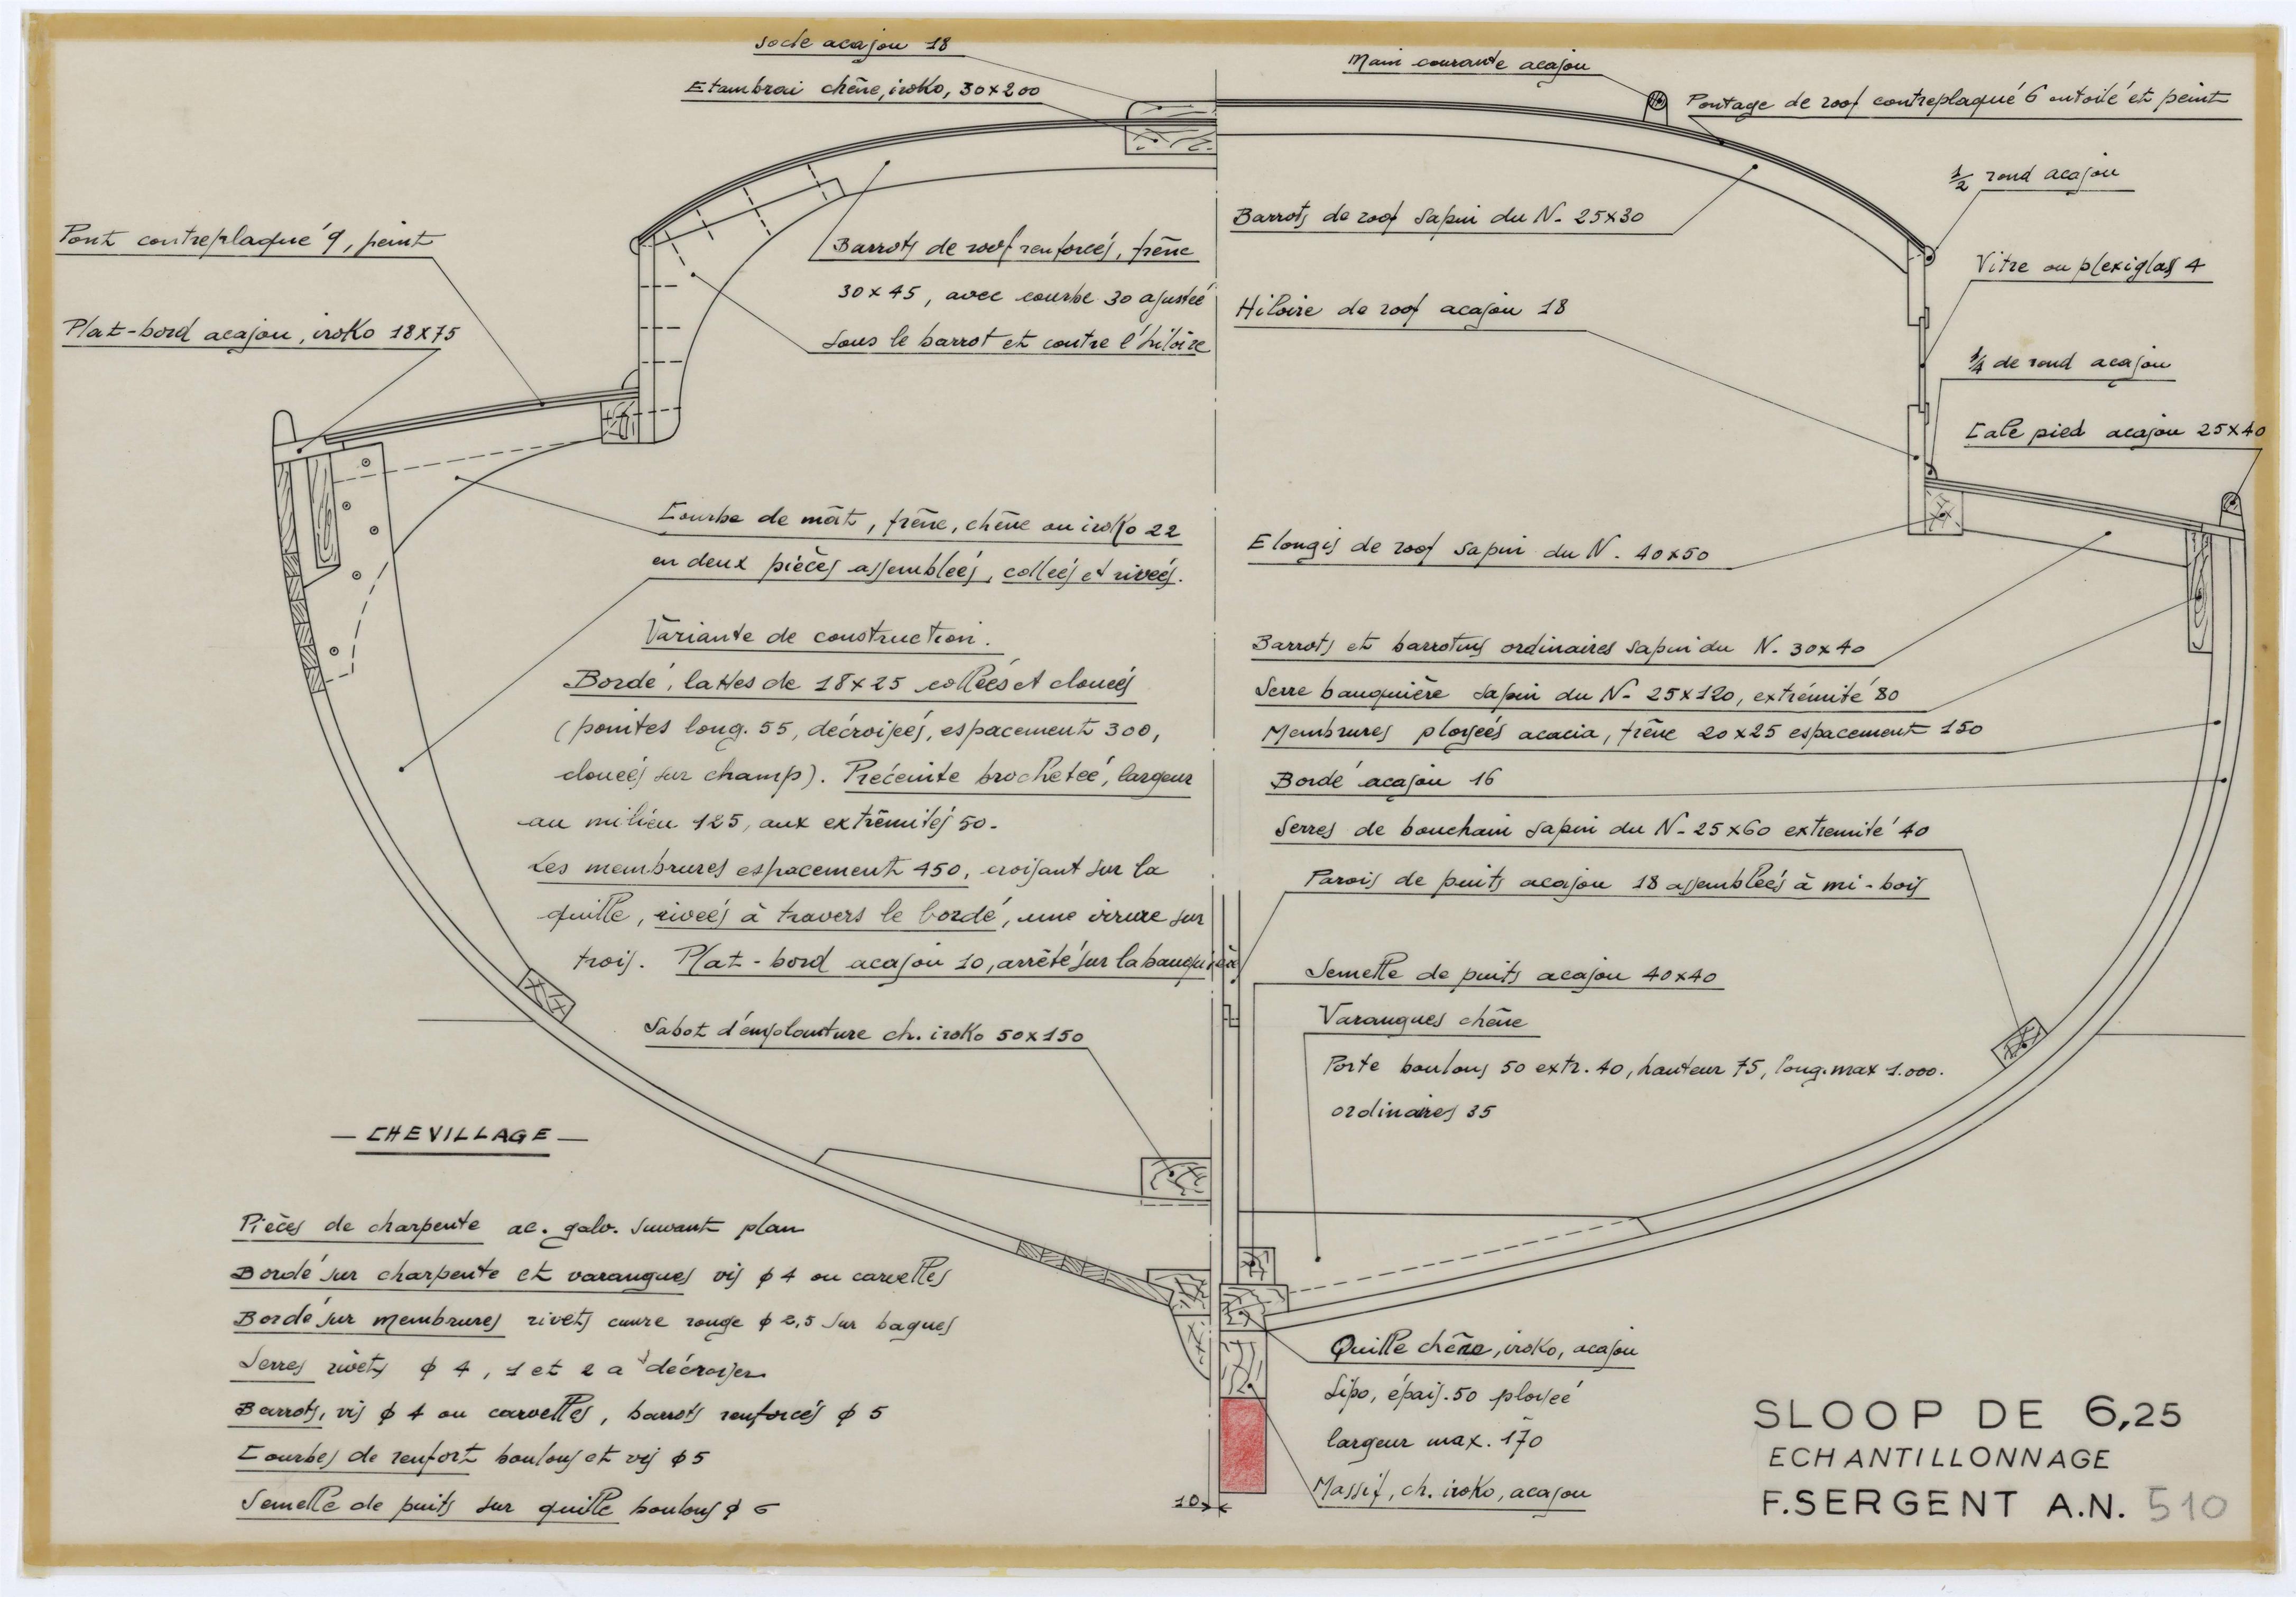 Socle acajou 18
Etambrai chêne, iroko, 30x200
Main courante acajou
Pontage de roof contreplaqué 6 entoilé et peint
1/2 rond acajou
Pont contreplaqué 9, peint
Barrots de roof renforcés, frêne
30x45, avec courbe 30 ajustée
sous le barrot et contre l'hiloire
Barrots de roof sapin du N. 25x30
Vitre ou plexiglass 4
Plat-bord acajou, iroko 18x75
Hiloire de roof acajou 18
1/4 de rond acajou
Cale pied acajou 25x40
Courbe de mât, frêne, chêne ou iroko 22
en deux pièces assemblées, collées et rivées.
Elongis de roof sapin du N. 40x50
Variante de construction.
Bordé, lattes de 18x25 collées et clouées
(pointes long. 55, décroisées, espacement 300,
clouées sur champ). Préceinte brochetée, largeur
au milieu 125, aux extrêmités 50.
Les membrures espacement 450, croisant sur la
quille, rivées à travers le bordé, une virure sur
trois. Plat-bord acajou 10, arrêté sur la bauquière
Barrots et barrotins ordinaires sapin du N. 30x40
Serre bauquière sapin du N. 25x120, extrémité 80
Membrures ployées acacia, frêne 20x25 espacement 150
Bordé acajou 16
Serres de bouchain sapin du N. 25x60 extremité 40
Parois de puits acajou 18 assemblées à mi-bois
Semelle de puits acajou 40x40
Varangues chêne
Porte boulons 50 extr. 40, hauteur 75, long. max 1.000.
ordinaires 35
Sabot d'emplanture ch. iroko 50x150
— CHEVILLAGE —
Pièces de charpente ac. galv. suivant plan
Bordé sur charpente et varangues vis ϕ 4 ou carvelles
Bordé sur membrures rivets cuivre rouge ϕ 2,5 sur bagues
Serres rivets ϕ 4, 1 et 2 à décroiser
Barrots, vis ϕ 4 ou carvelles, barrots renforcés ϕ 5
Courbes de renfort boulons et vis ϕ 5
Semelle de puits sur quille boulons ϕ 6
Quille chêne, iroko, acajou
Sipo, épais. 50 ployée
largeur max. 170
Massif, ch. iroko, acajou
10
SLOOP DE 6,25
ECHANTILLONNAGE
F. SERGENT A.N. 510